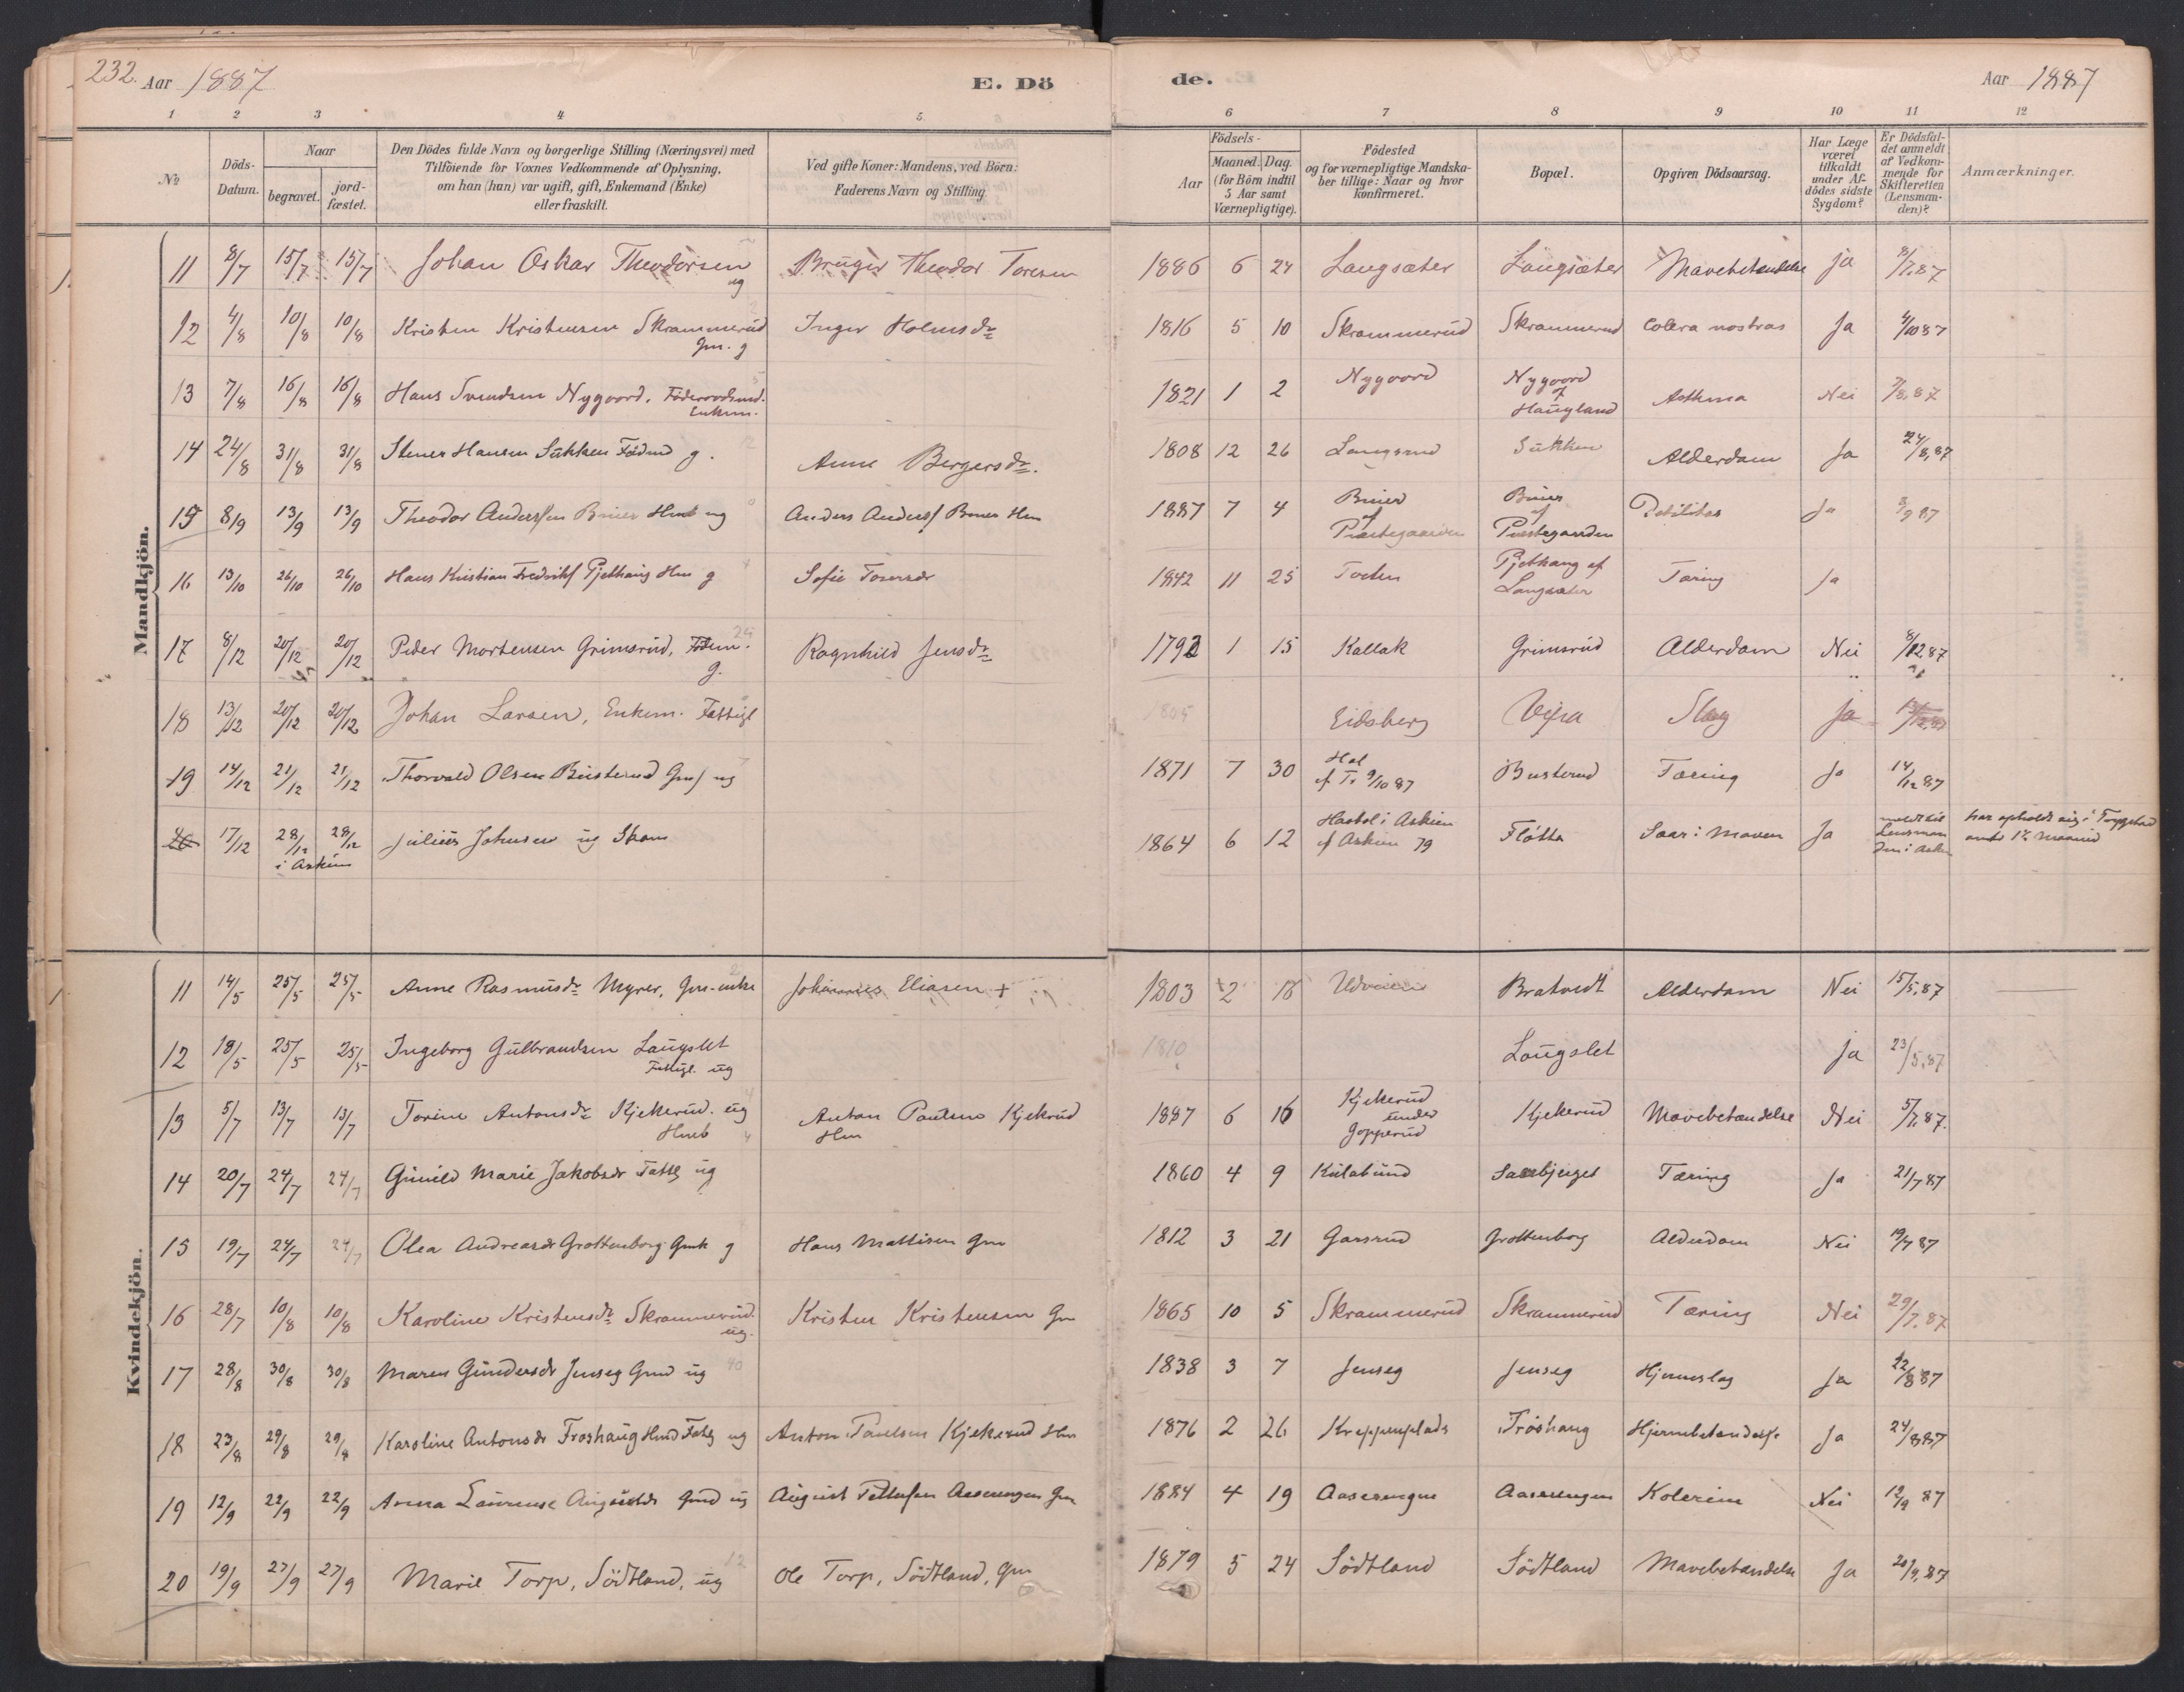 232. Aar 1887 E. Dö de. Aar 1887
1 2 3 4 5 6 7 8 9 10 11 12
No
Döds-Datum.
Naar
begravet.
jord-fæstet.
Den Dödes fulde Navn og borgerlige Stilling (Næringsvei) med
Tilföiende for Voxnes Vedkommende af Oplysning,
om han (hun) var ugift, gift, Enkemand (Enke)
eller fraskilt.
Ved gifte Koner: Mandens, ved Börn:
Faderens Navn og Stilling.
Födsels-
Aar
Maaned. Dag.
(for Börn indtil
5 Aar samt
Værnepligtige).
Födested
og for værnepligtige Mandska-
ber tillige: Naar og hvor
konfirmeret.
Bopæl.
Opgiven Dödsaarsag.
Har Læge
været
tilkaldt
under Af-
dödes sidste
Sygdom?
Er Dödsfal-
det anmeldt
af Vedkom-
mende for
Skifteretten
(Lensman-
den)?
Anmærkninger.
Mandkjön.
11 8/7 15/7 15/7 Johan Oskar Theodorsen ug Bruger Theodor Toresen 1886 6 24 Langsæter Langsæter Mavebetændelse ja 8/7.87
12 4/8 10/8 10/8 Kristen Kristensen Skrammerud Gm. g Inger Holmsdr 1816 5 10 Skrammerud Skrammerud Colera nostras Ja 4/10 87
13 7/8 16/8 16/8 Hans Svendsen Nygoord, Enkem. 1821 1 2 Nygoord Nygoord af Haugland Asthma Nei 7/8.87
14 24/8 31/8 31/8 Stener Hansen Sukken Födmd g. Anne Bergersdr. 1808 12 26 Langsrud Sukken Alderdom Ja 24/8,87
15 8/9 13/9 13/9 Theodor Anderssen Bruer Hmb ug Anders Anderss Bruer Hm 1887 7 4 Bruer af Præstegaarden Bruer af Præstegaarden Debilitas Ja 8/9 87
16 13/10 26/10 26/10 Hans Kristian Fredriks Pjethaug Hm g Sofie Toversdr 1842 11 25 Toten Pjethaug af Langsæter Tæring Ja
17 8/12 20/12 20/12 Peder Mortensen Grimsrud, Födem. g. Ragnhild Jensdr 1792 1 15 Kallak Grimsrud Alderdom Nei 8/12.87
18 13/12 20/12 20/12 Johan Larsen, Enkem. Fattigl 1805 Eidsberg Slag ja 13/12.87
19 14/12 21/12 21/12 Thorvald Olsen Busterud Gms ug 1871 7 30 Hol cf. Tr 9/10 87 Busterud Tæring Ja 14/12 87
20 17/12 28/12 28/12 i Askim Julius Johnsen ug Skom 1864 6 12 Haabol i Askim cf Askim 79 Flötta Saar i Maven Ja meldt til Lensman den i Askim har opholdt sig i Trygstad
Kvindekjön.
11 14/5 25/5 25/5 Anne Rasmusdr Myrer, Gm-enke Johannes Eliasen + 1803 2 18 Bratvedt Alderdom Nei 15/5.87
12 18/5 25/5 25/5 Ingeborg Gulbrandsen Laugslet Fattigl. ug 1810 Laugslet ja 23/5.87
13 5/7 13/7 13/7 Torine Antonsdr Kjekerud. ug Hmb Anton Paulsen Kjekrud Hm 1887 6 16 Kjekerud under Gopperud Kjekerud Mavebetændelse Nei 5/7.87.
14 20/7 24/7 24/7 Gunild Marie Jakobsdr Fattg ug 1860 4 9 Kulabund Tæring Ja 21/7 87
15 19/7 24/7 24/7 Olea Andreasdr Grottenborg Gmk g Hans Mattisen Gm 1812 3 21 Gaasrud Grottenborg Alderdom Nei 19/7 87
16 28/7 10/8 10/8 Karoline Kristensdr Skrammerud. ug. Kristen Kristensen Gm 1865 10 5 Skrammerud Skrammerud Tæring Nei 29/7.87
17 28/8 30/8 30/8 Maren Gundersdr Jenseg Gmd ug 1838 3 7 Jenseg Jenseg Hjerneslag Ja 22/8 87
18 23/8 29/8 29/8 Karoline Antonsdr Froshaug Hmd Fattg ug Anton Paulsen Kjekerud Hm 1876 2 26 Kroppenplads Fröshaug Hjernebetændelse Ja 24/8 87
19 12/9 22/9 22/9 Anna Laurense Augustsdr Gmd ug August Pettersen Aaserengen Gm 1884 4 19 Aaserengen Aaserengen Kolerine Nei 12/9 87
20 19/9 27/9 27/9 Marie Torp, Södtland, ug Ole Torp, Södtland, Gm 1879 5 24 Södtland Södtland Mavebetændelse Ja 20/9.87